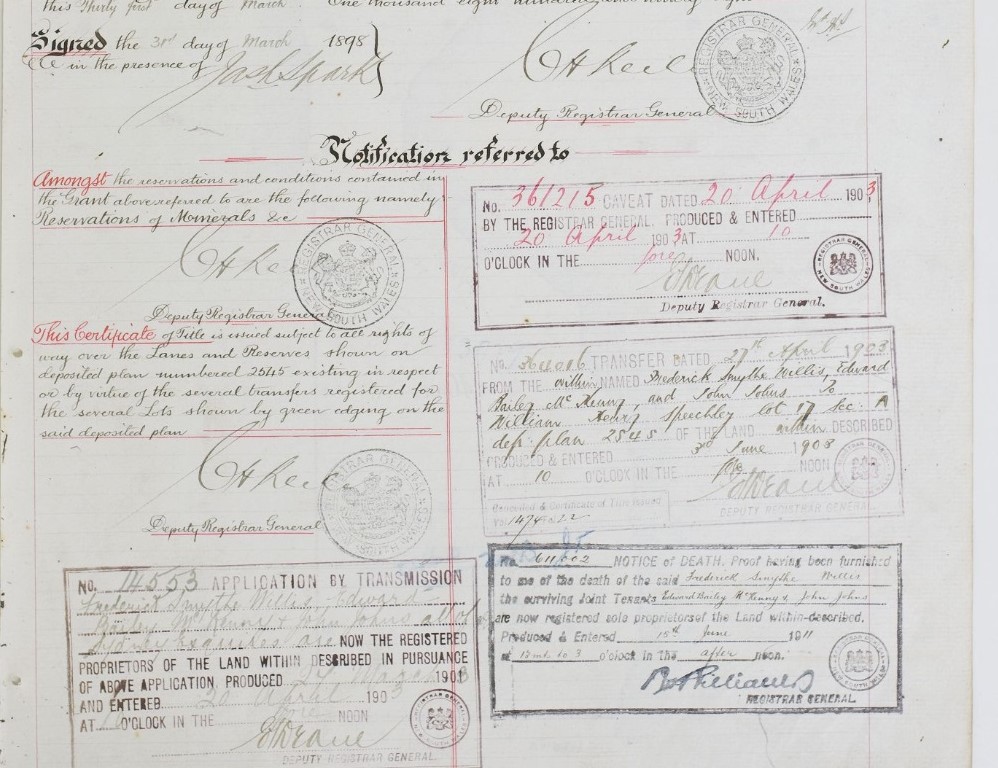 this Thirty first day of March. One thousand eight hundred and ninety eight
Signed the 31st day of March 1898
in the presence of
Jas L Spark
Deputy Registrar General
REGISTRAR GENERAL NEW SOUTH WALES
Notification referred to
Amongst the reservations and conditions contained in
the Grant above referred to are the following namely
Reservations of Minerals &c
Deputy Registrar General
REGISTRAR GENERAL NEW SOUTH WALES
This Certificate of Title is issued subject to all rights of
way over the Lanes and Reserves shown on
deposited plan numbered 2545 existing in respect
or by virtue of the several transfers registered for
the several Lots shown by green edging on the
said deposited plan
Deputy Registrar General
REGISTRAR GENERAL NEW SOUTH WALES
No. 14553 APPLICATION BY TRANSMISSION
Frederick Smythe Willis, Edward
Bailey McKenny & John Johns all of
Sydney Esquires are NOW THE REGISTERED
PROPRIETORS OF THE LAND WITHIN DESCRIBED IN PURSUANCE
OF ABOVE APPLICATION, PRODUCED 1903
AND ENTERED 20 April 1903
AT O'CLOCK IN THE fore NOON
DEPUTY REGISTRAR GENERAL.
No. 361215 CAVEAT DATED 20 April 1903
BY THE REGISTRAR GENERAL. PRODUCED & ENTERED
20 April 1903 AT 10
O'CLOCK IN THE fore NOON.
Deputy Registrar General.
REGISTRAR GENERAL NEW SOUTH WALES
No. 364016 TRANSFER DATED 27th April 1903
FROM THE within NAMED Frederick Smythe Willis, Edward
Bailey McKenny, and John Johns To
William Henry Speechley lot 17 Sec. A
dep. plan 2545 OF THE LAND within DESCRIBED
PRODUCED & ENTERED 3rd June 1903
AT 10 O'CLOCK IN THE fore NOON
DEPUTY REGISTRAR GENERAL.
Cancelled & Certificate of Title issued
Vol 1474
No. 611002 NOTICE of DEATH. Proof having been furnished
to me of the death of the said Frederick Smythe Willis
the surviving Joint Tenants Edward Bailey McKenny & John Johns
are now registered sole proprietors of the Land within-described.
Produced & Entered 15th June 1911
at 12 mts to 3 o'clock in the after noon.
REGISTRAR GENERAL.